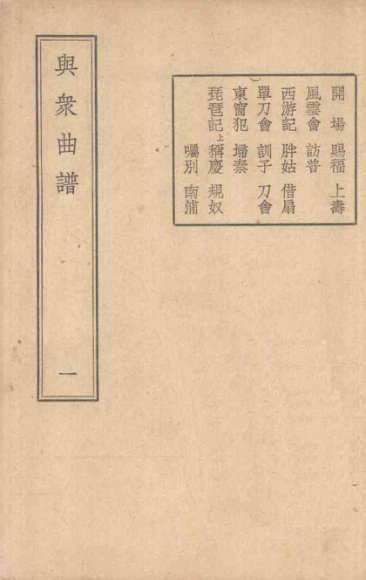 開場　賜福　上壽
風雲會　訪普
西游記　胖姑　借扇
單刀會　訓子　刀會
東窗犯　埽秦
琵琶記上　稱慶　規奴
囑別　南浦
與衆曲譜
一